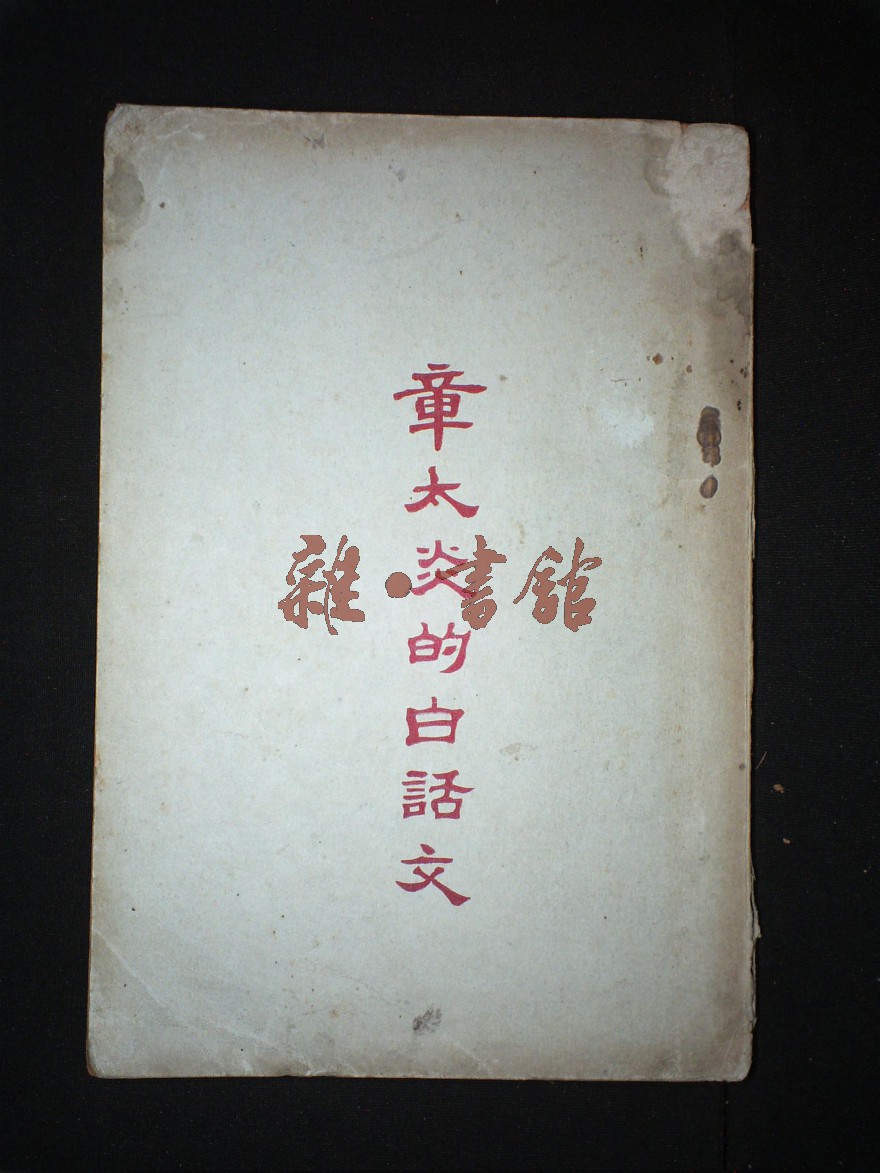 章太炎的白話文
雜·書館